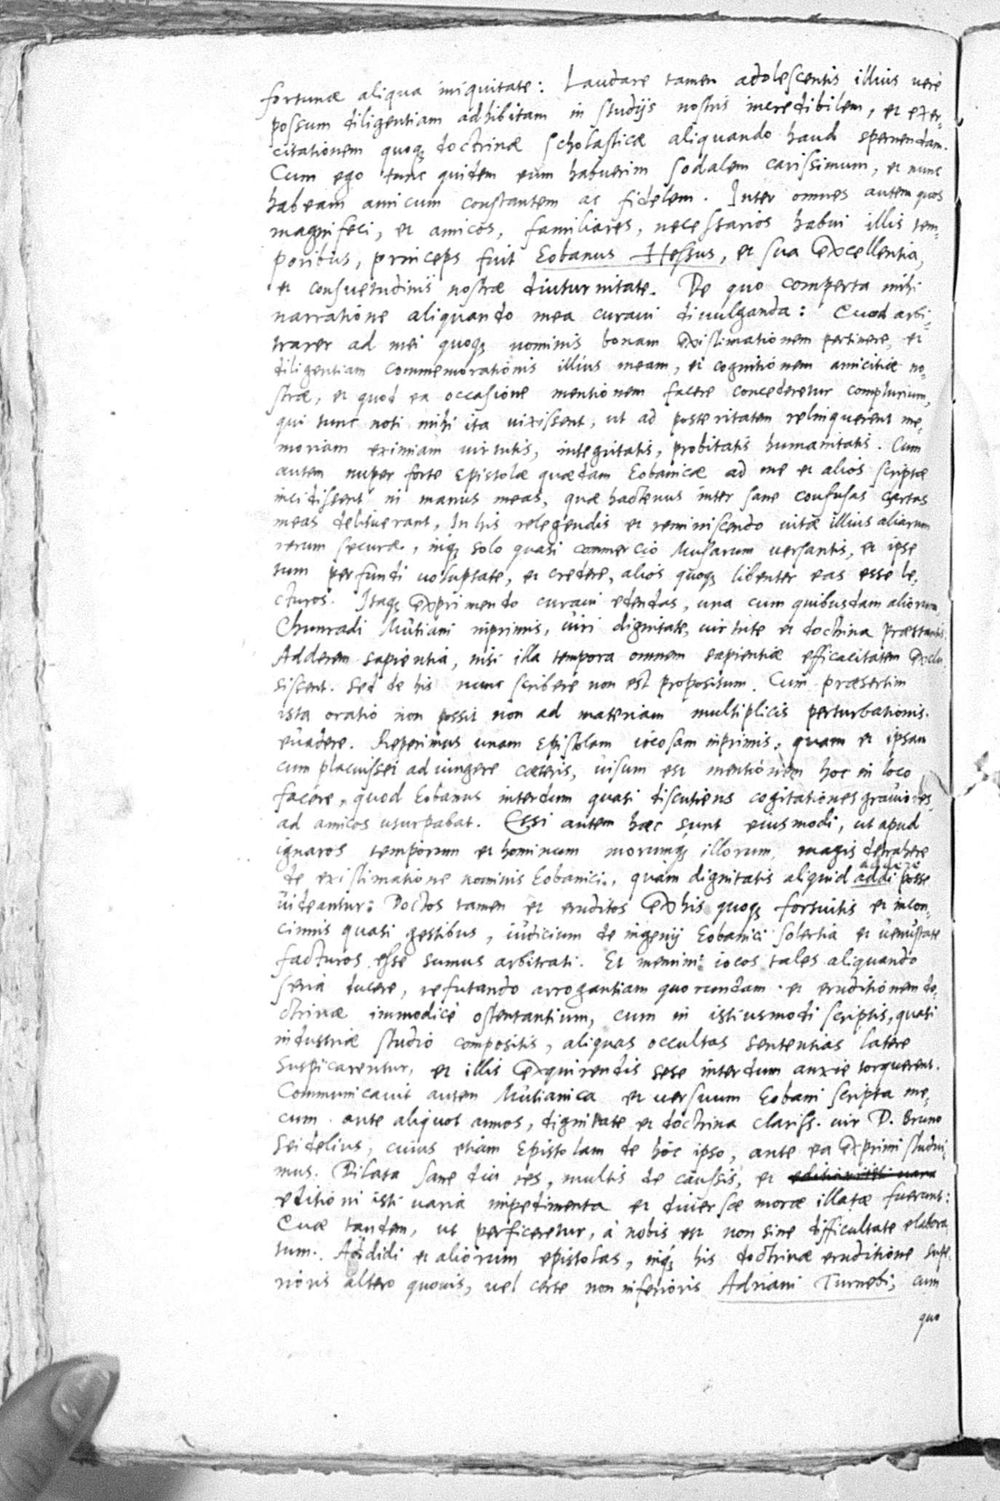 fortunæ aliqua iniquitate: Laudare tamen adolescentis illius verè
possum diligentiam adhibitam in studijs nostris incredibilem, et exer-
citationem quoqꝫ doctrinæ scholasticæ aliquando haud spernendam.
Cum ego tunc quidem eum habuerim sodalem carissimum, et nunc
habeam amicum constantem ac fidelem. Inter omnes autem quos
magnifeci, et amicos, familiares, necessarios habui illis tem-
poribus, princeps fuit Eobanus Hessus, et sua excellentia,
et consuetudinis nostræ diuturnitate. De quo comperta mihi
narratione aliquando mea curaui diuulganda: Quod arbi-
trarer ad mei quoqꝫ nominis bonam existimationem pertinere, et
diligentiam commemorationis illius meam, et cognitionem amicitiæ no-
stræ, et quod ea occasione mentionem facere concederetur complurium,
qui tunc noti mihi ita uixissent, ut ad posteritatem relinquerent me-
moriam eximiam uirtutis, integritatis, probitatis humanitatis. Cum
autem nuper forte Epistolæ quædam Eobanicæ ad me et alios scriptæ
incidissent in manus meas, quæ hactenus inter sane confusas cartas
meas delituerant, In his relegendis et reminiscendo uitæ illius aliarum
rerum securæ, inqꝫ solo quasi commercio Musarum uersantis, et ipse
tum perfundi uoluptate, et credere, alios quoqꝫ libenter eas esse le-
cturos. Itaqꝫ exprimendo curaui edendas, una cum quibusdam aliorum,
Chunradi Mutiani inprimis, uiri dignitate, uirtute et doctrina præstantis.
Adderem sapientia, nisi illa tempora omnem sapientiæ efficacitatem exclu
sissent. Sed de his nunc scribere non est propositum. Cum præsertim
ista oratio non possit non ad materiam multiplicis perturbationis.
euadere. Reperimus unam Epistolam iocosam inprimis, quam et ipsam
cum placuisset adiungere cæteris, uisum est mentionem hoc in loco
facere, quod Eobanus interdum quasi discutiens cogitationes grauiores,
ad amicos usurpabat. Etsi autem hæc sunt eiusmodi, ut apud
ignaros temporum et hominum morumqꝫ illorum, magis detrahere
de existimatione nominis Eobanici, quàm dignitatis aliquid addi posse
uideantur: Doctos tamen et eruditos ex his quoqꝫ fortuitis et incon-
cinnis quasi gestibus, iudicium de ingenij Eobanici solertia et uenustate
facturos esse sumus arbitrati. Et memini iocos tales aliquando
seria ducere, refutando arrogantiam quorundam et eruditionem do-
ctrinæ immodicè ostentantium, cum in istiusmodi scriptis, quasi
industriæ studio compositis, aliquas occultas sententias latere
suspicarentur, et illis exquirendis sese interdum anxie torquerent.
Communicauit autem Mutianica et uersuum Eobani scripta me-
cum ante aliquot annos, dignitate et doctrina clariss. uir D. Bruno
Seidelius, cuius etiam Epistolam de hoc ipso, ante ea exprimi studui-
mus. Dilata sane diu res, multis de caussis, et
editioni isti uaria impedimenta et diuersæ moræ illatæ fuerunt:
Quæ tandem, ut perficeretur, à nobis est non sine difficultate elabora
tum. Addidi et aliorum epistolas, inqꝫ his doctrinæ eruditione supe-
rioris altero quouis, uel certe non inferioris Adriani Turnebi, cum
quo